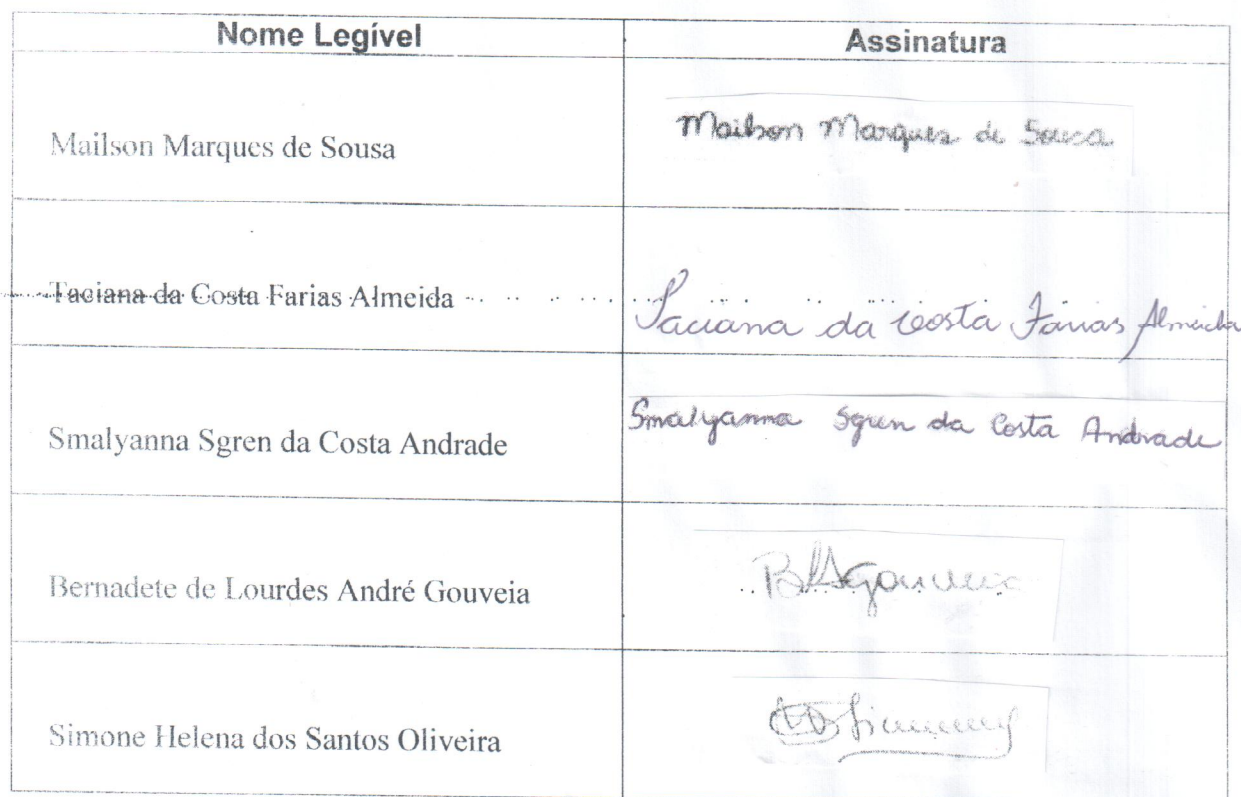 Nome Legível Assinatura
Mailson Marques de Sousa Mailson Marques de Sousa
Taciana da Costa Farias Almeida Taciana da Costa Farias Almeida
Smalyanna Sgren da Costa Andrade Smalyanna Sgren da Costa Andrade
Bernadete de Lourdes André Gouveia BLAGouveia
Simone Helena dos Santos Oliveira